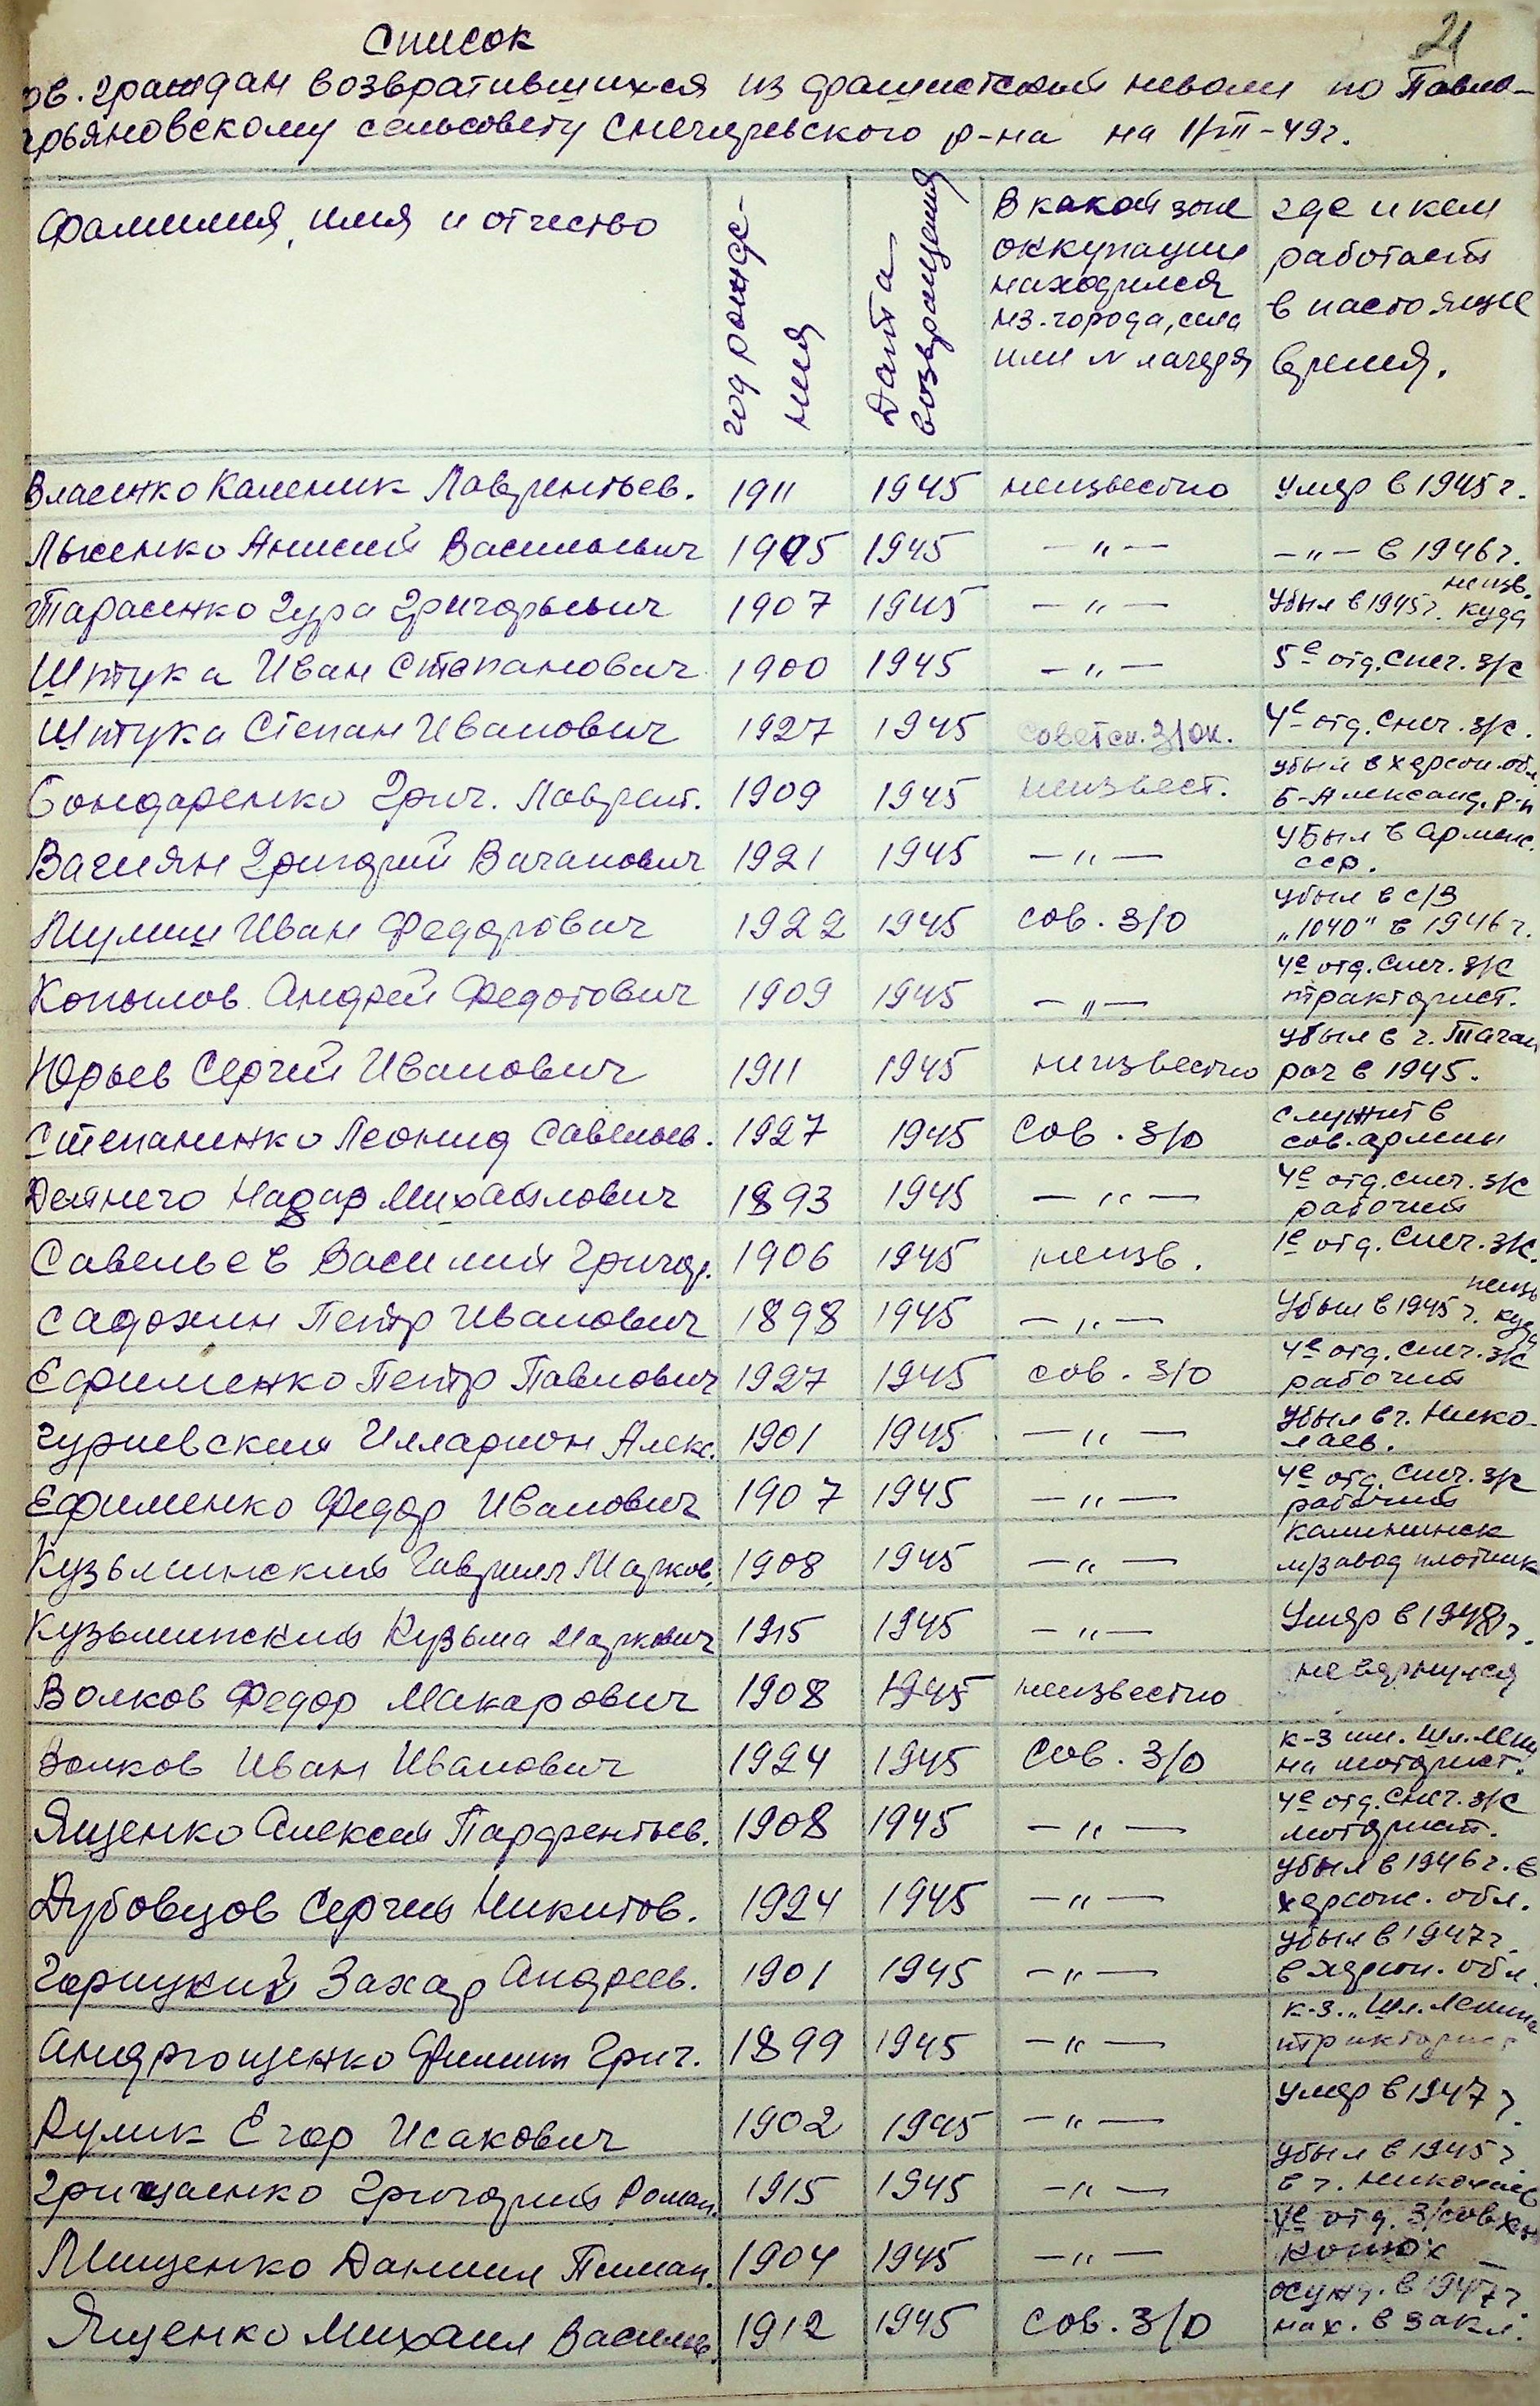 21
Список
ов. граждан возвратившихся из фашистской неволи по Павло-
арьяновскому сельсовету Снегиревского р-на на 1/III-49г.
Фамилия, имя и отчество
год рожде-
ния
Дата
возвращения
В какой зоне
оккупации
находился
нз. города, села
или № лагеря
где и кем
работает
в настоящее
время.
Власенко Каленик Лаврентьев. 1911 1945 неизвестно умер в 1945г.
Лысенко Анисий Васильевич 1905 1945 -"- -"- в 1946г.
Тарасенко Гура Григорьевич 1907 1945 -"- убыл в 1945г. неизв. куда
Шптука Иван Степанович 1900 1945 -"- 5е отд. снег. з/с
Шптука Степан Иванович 1927 1945 советск. з/ок. 4е отд. снег. з/с.
Бондаренко Григ. Лаврент. 1909 1945 неизвест. убыл в херсон. обл.
Б-Александ. р-н
Вагиян Григорий Ваганович 1921 1945 -"- убыл в армянс.
сср.
Мулиш Иван Федорович 1922 1945 сов. з/о убыл в с/з
„1040" в 1946г.
Копылов Андрей Федотович 1909 1945 -"- 4е отд. снег. з/с
тракторист.
Юрьев Сергей Иванович 1911 1945 неизвестно убыл в г. Таган
рог в 1945.
Степаненко Леонид Савельев. 1927 1945 Сов. з/о служит в
сов. армии
Дейнего Назар Михайлович 1893 1945 -"- 4е отд. снег. з/с
рабочий
Савельев Василий Григор. 1906 1945 неизв. 1е отд. снег. з/с.
Садохин Петр Иванович 1898 1945 -"- убыл в 1945г. неизв куда
Ефименко Петр Павлович 1927 1945 сов. з/о 4е отд. снег. з/с
рабочий
Гуриевский Илларион Алекс. 1901 1945 -"- убыл в г. Нико-
лаев.
Ефименко Федор Иванович 1907 1945 -"- 4е отд. снег. з/с
рабочий
Кузьминский Гаврилл Марков. 1908 1945 -"- Калининск
м/завод плотник
Кузьминский Кузьма Маркович 1915 1945 -"- Умер в 1948г.
Волков Федор Макарович 1908 1945 неизвестно не вернулся
Волков Иван Иванович 1924 1945 Сов. з/о к-з им. Шл. Лени
на моторист.
Ященко Алексей Парфентьев. 1908 1945 -"- 4е отд. снег. з/с
моторист.
Дубовцов Сергей Никитов. 1924 1945 -"- убыл в 1946г. в
херсонс. обл.
Горицкий Захар Андреев. 1901 1945 -"- убыл в 1947г.
в херсон. обл.
Андрющенко Филипп Григ. 1899 1945 -"- к-з. „Шл. Ленина
тракторист
Кулик Егор Исакович 1902 1945 -"- умер в 1947г.
Грищаенко Григорий Роман. 1915 1945 -"- убыл в 1945г
в г. Николаев
Мищенко Даниил Пиман. 1904 1945 -"- 4е отд. з/совх.
конюх
Ященко Михаил Васильев. 1912 1945 Сов. з/о осужд. в 1947г.
нах. в закл.